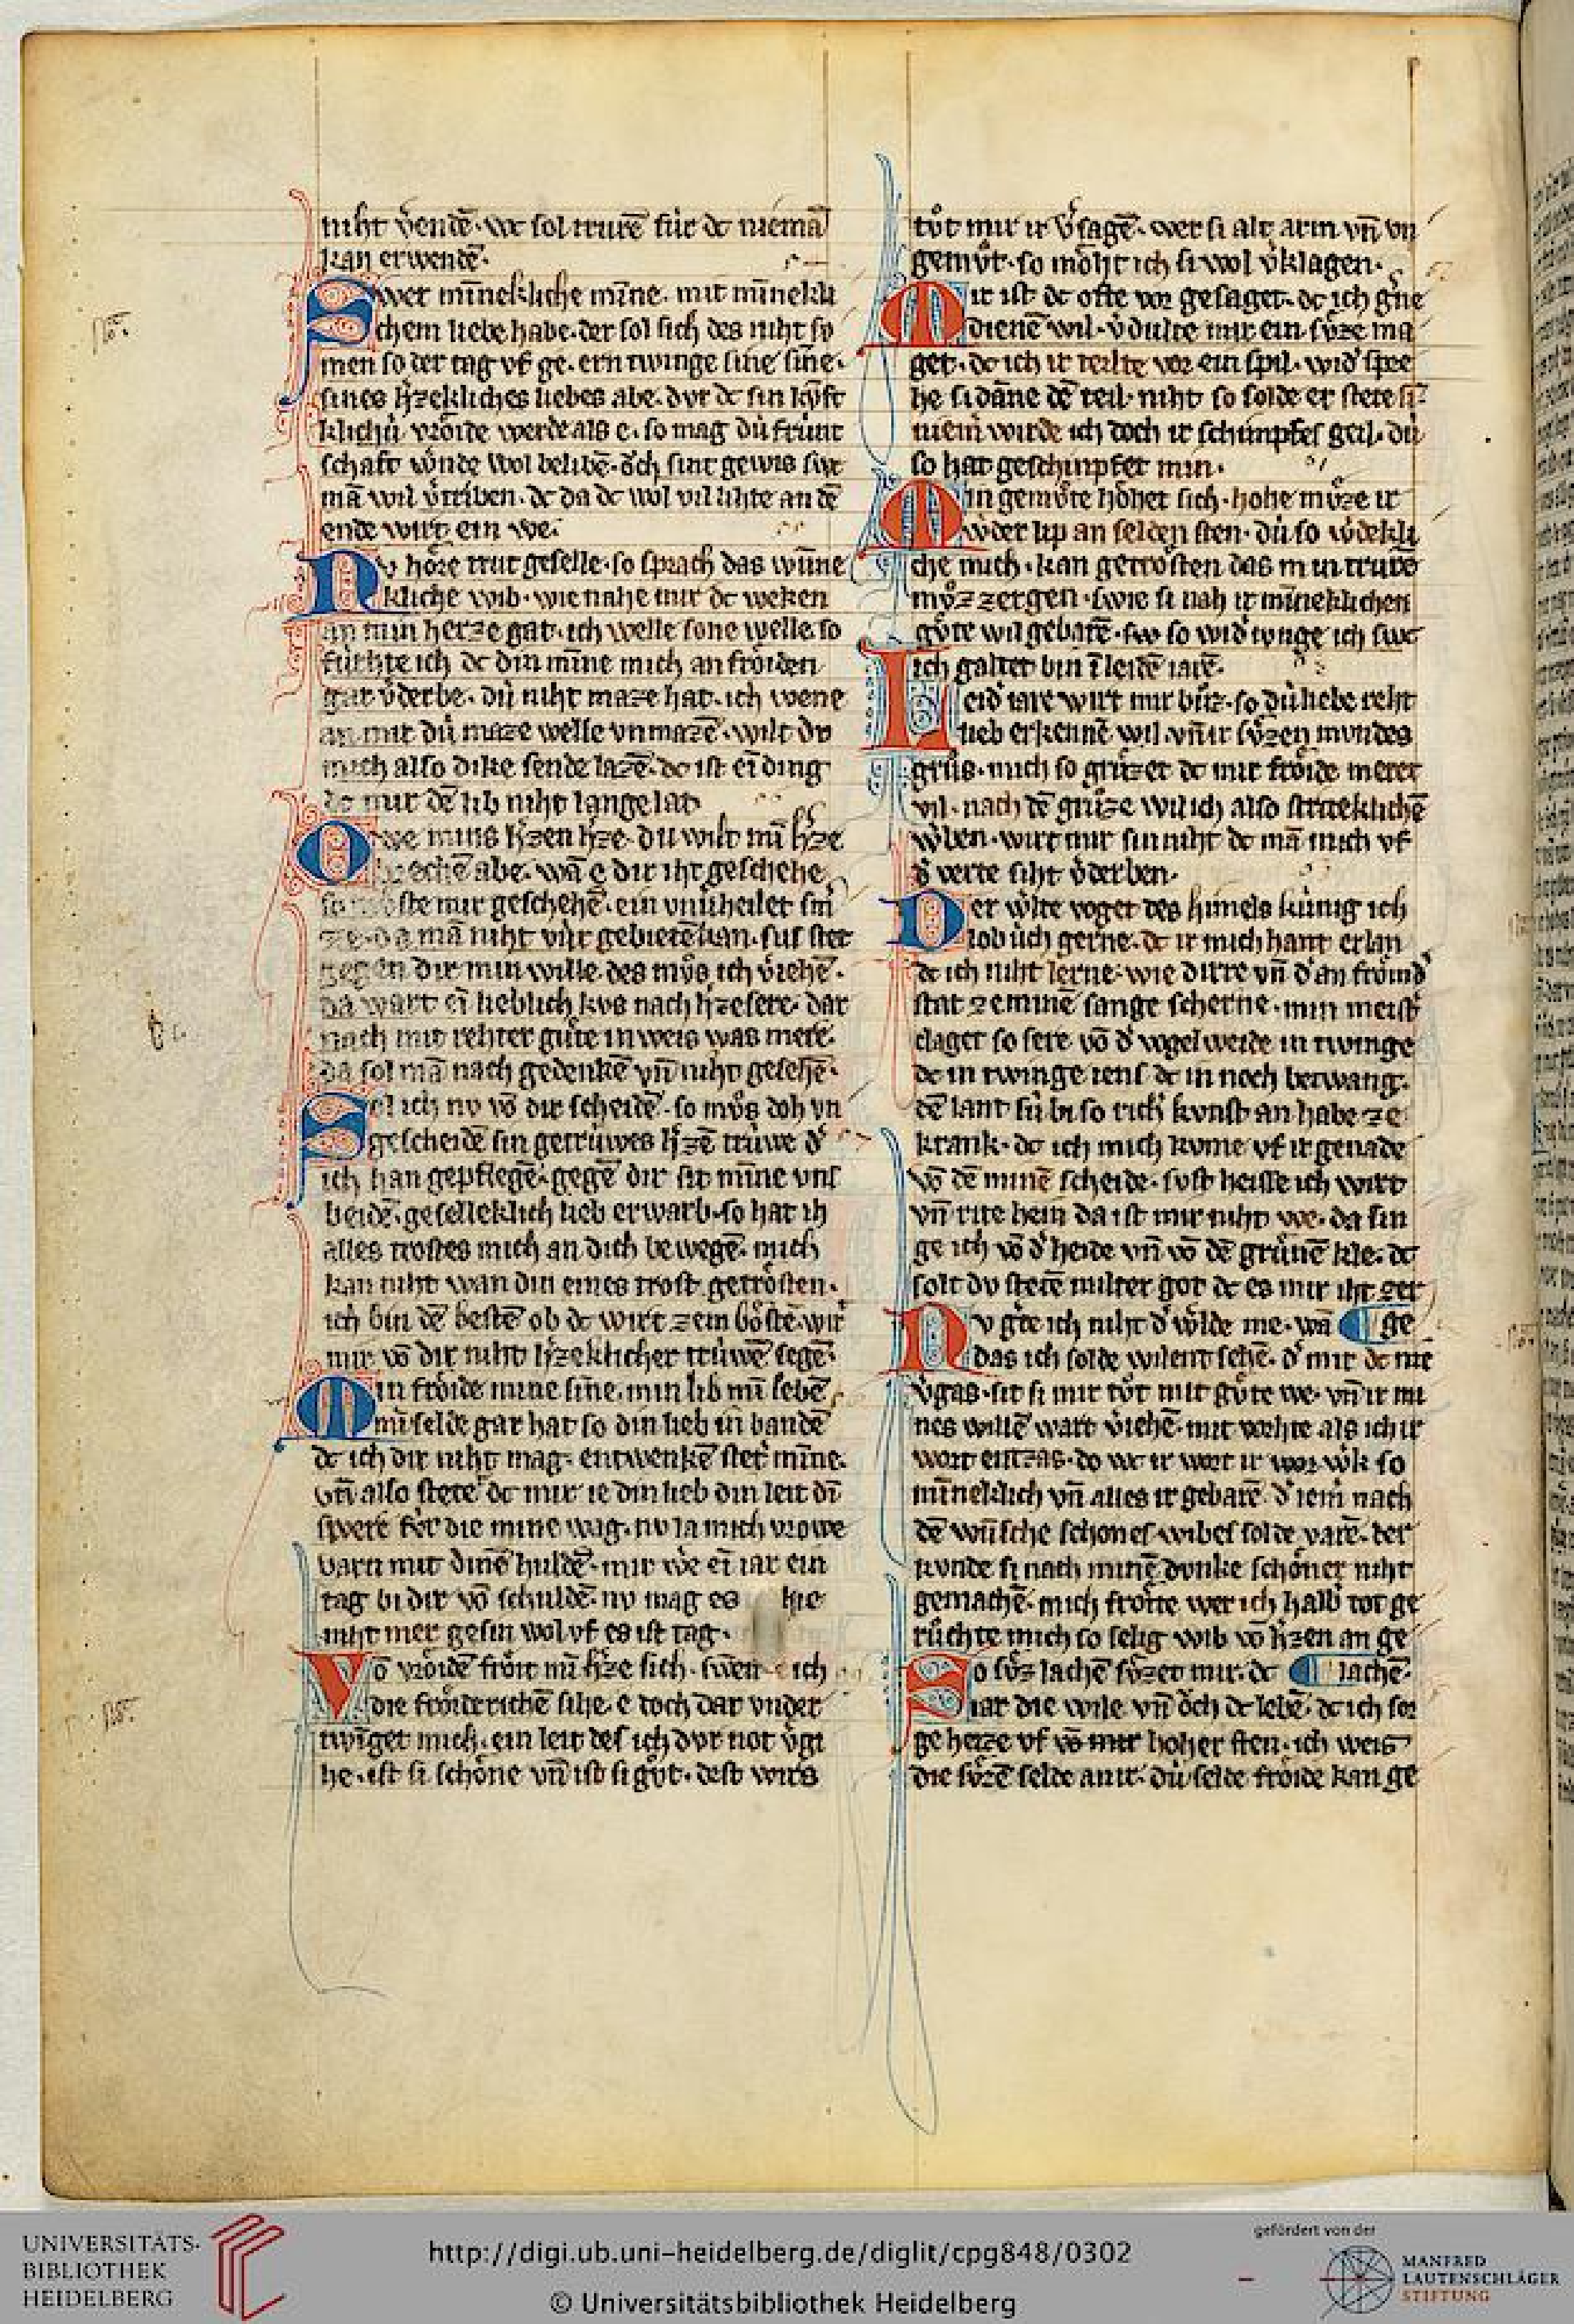 niht v̾endē· wc sol trurē für dc niemā
kan erwendē·
Swer mīnekliche mīne· mit minekli
chem liebe habe· der sol sich des niht so
men so der tag vf ge· ern twinge sine sine·
sines h̾zekliches liebes abe· dvr dc sin kv̊ft
klichu̇ vrőide werde als e· so mag du̇ fru̇nt
schaft
mā wil v̾triben· dc da dc wol vil lihte an dē
ende wirt ein we·
Nv hőre trut geselle· so sprach das wūne
kliche wib· wie nahe mir dc weken
an min herze gat· ich welle sone welle so
fu̇rhte ich dc din mīne mich an frőiden
gar v̾derbe· du̇ niht maze hat· ich wene
an mir du̇ maze welle vnmazē· wilt dv
mich also dike sende lazē· dc ist eī ding
dc mir dē lib niht lange lat
Owe mins h̾zen h̾ze· du wilt mī h̾ze
brechē abe· wā e dir iht geschehe
so mv̊ste mir geschehē· ein vnuheilet sm̾
ze· da mā niht vu̇r gebietē kan· sus stet
gegen dir min wille· des mv̊s ich v̾iehē·
da wart eī lieblich kvs nach h̾zesere· dar
nach mit rehter gu̇te in weis was mere·
da sol mā nach gedenkē vn̄ niht gesehē·
Sol ich nv vō dir scheidē· so mv̊s doh vn
gescheidē sin getru̇wes h̾zē tru̇we d̾
ich han gepflegē· gegē dir sit mīne vns
beidē· geselleklich lieb erwarb· so hat ih
alles trostes mich an dich bewegē· mich
kan niht wan din eines trost getrősten·
ich bin dē bestē ob dc wirt zem bőstē· wir
mir vō dir niht h̾zeklicher tru̇wē segē·
Min frőide mine sīne· min lib mī lebē
mī selde gar hat so din lieb in bandē
dc ich dir niht mag· entwenkē stet̾ mīne·
vn̄ also stete dc mir ie din lieb din leit dī
swere fër die mine wag· nv la mich vrowe
varn mit dinē huldē· mir we eī iar ein
tag bi dir vō schuldē· nv mag es hie
niht mer gesin wol vf es ist tag·
Vō vrőidē frőit mī h̾ze sich· swen e ich
die frőiderichē sihe· e doch dar vnder
twīget mich· ein leit des ich dvr not v̾gi
he· ist si schőne vn̄ ist si gv̊t· dest wirs
tv̊t mir ir v̾sagē· wer si alt arm vn̄ vn
gemv̊t· so mőht ich si wol v̾klagen·
Mir ist dc ofte vor gesaget· dc ich g̾ne
dienē wil· v̾dulte mir ein sv̊ze ma
get· dc ich ir teilte vor ein spil· wid̾ spre
he si dāne dē teil· niht so solde er stete sī
niem̾ wirde ich doch ir schimpfes geil· du̇
so hat geschinpfet min·
Min gemv̊te hőhet sich· hohe mv̊ze ir
w̾der lip an selden sten· du̇ so w̾dekli
che mich· kan getrősten das min truṙe
mv̊z zergen· swie si nah ir mīneklichen
gv̊te wil gebarē· so wid̾ iunge ich swc
ich galtet bin ī leidē iarē·
Leid̾ iare wirt mir bu̇z· so du̇ liebe reht
lieb erkennē wil· vn̄ ir sv̊zen mvndes
gru̇s· mich so gru̇zet dc mir frőide meret
vil· nach dē gru̇ze wil ich also stteklichē
w̾ben· wirt mir sin niht dc mā mich vf
d̾ verte siht v̾derben·
Der w̾lte voget des himels ku̇nig ich
lob u̇ch gerne· dc ir mich hant erlan
dc ich niht lerne· wie dirre vn̄ d̾ an frőmd̾
stat ze minē sange scherne· min meist̾
claget so sere vō d̾ vogelweide in twinge
dc in twinge iens dc in noch betwang·
dē lant su̇ bi so rich̾ kvnst an habe ze
krank· dc ich mich kvme vf ir genade
vō dē minē scheide· svst heisse ich wirt
vn̄ rite hein da ist mir niht we· da sin
ge ich vō d̾ heide vn̄ vō dē gru̇nē kle· dc
solt dv stetē milter got dc es mir iht zer
Nv g̾te ich niht d̾ w̾lde me· wā ¶ ge
das ich solde wilent sehē· d̾ mir dc nie
v̾gas· sit si mir tv̊t mit gv̊te we· vn̄ ir mi
nes willē wart v̾iehē· mit vorhte als ich ir
wort entzas· do wc ir wort ir w̾k so
mīneklich vn̄ alles ir gebarē· d̾ iem̾ nach
dē wūsche schones wibes solde varē· der
kvnde si nach minē dvnke schőner niht
gemachē· mich frőte wer ich halb tot ge
ru̇chte mich so selig wib vō h̾zen an ge
So sv̊z lachē sv̊zet mir· dc ¶ lachē·
iar die wile vn̄ őch dc lebē· dc ich sor
ge herze vf vō mir hoher sten· ich weis
die sv̊zē selde an ir· du̇ selde frőide kan ge
No͞.
No͞.
UNIVERSITÄTS-
BIBLIOTHEK
HEIDELBERG
http://digi.ub.uni-heidelberg.de/diglit/cpg848/0302
© Universitätsbibliothek Heidelberg
gefördert von der
MANFRED
LAUTENSCHLÄGER
STIFTUNG